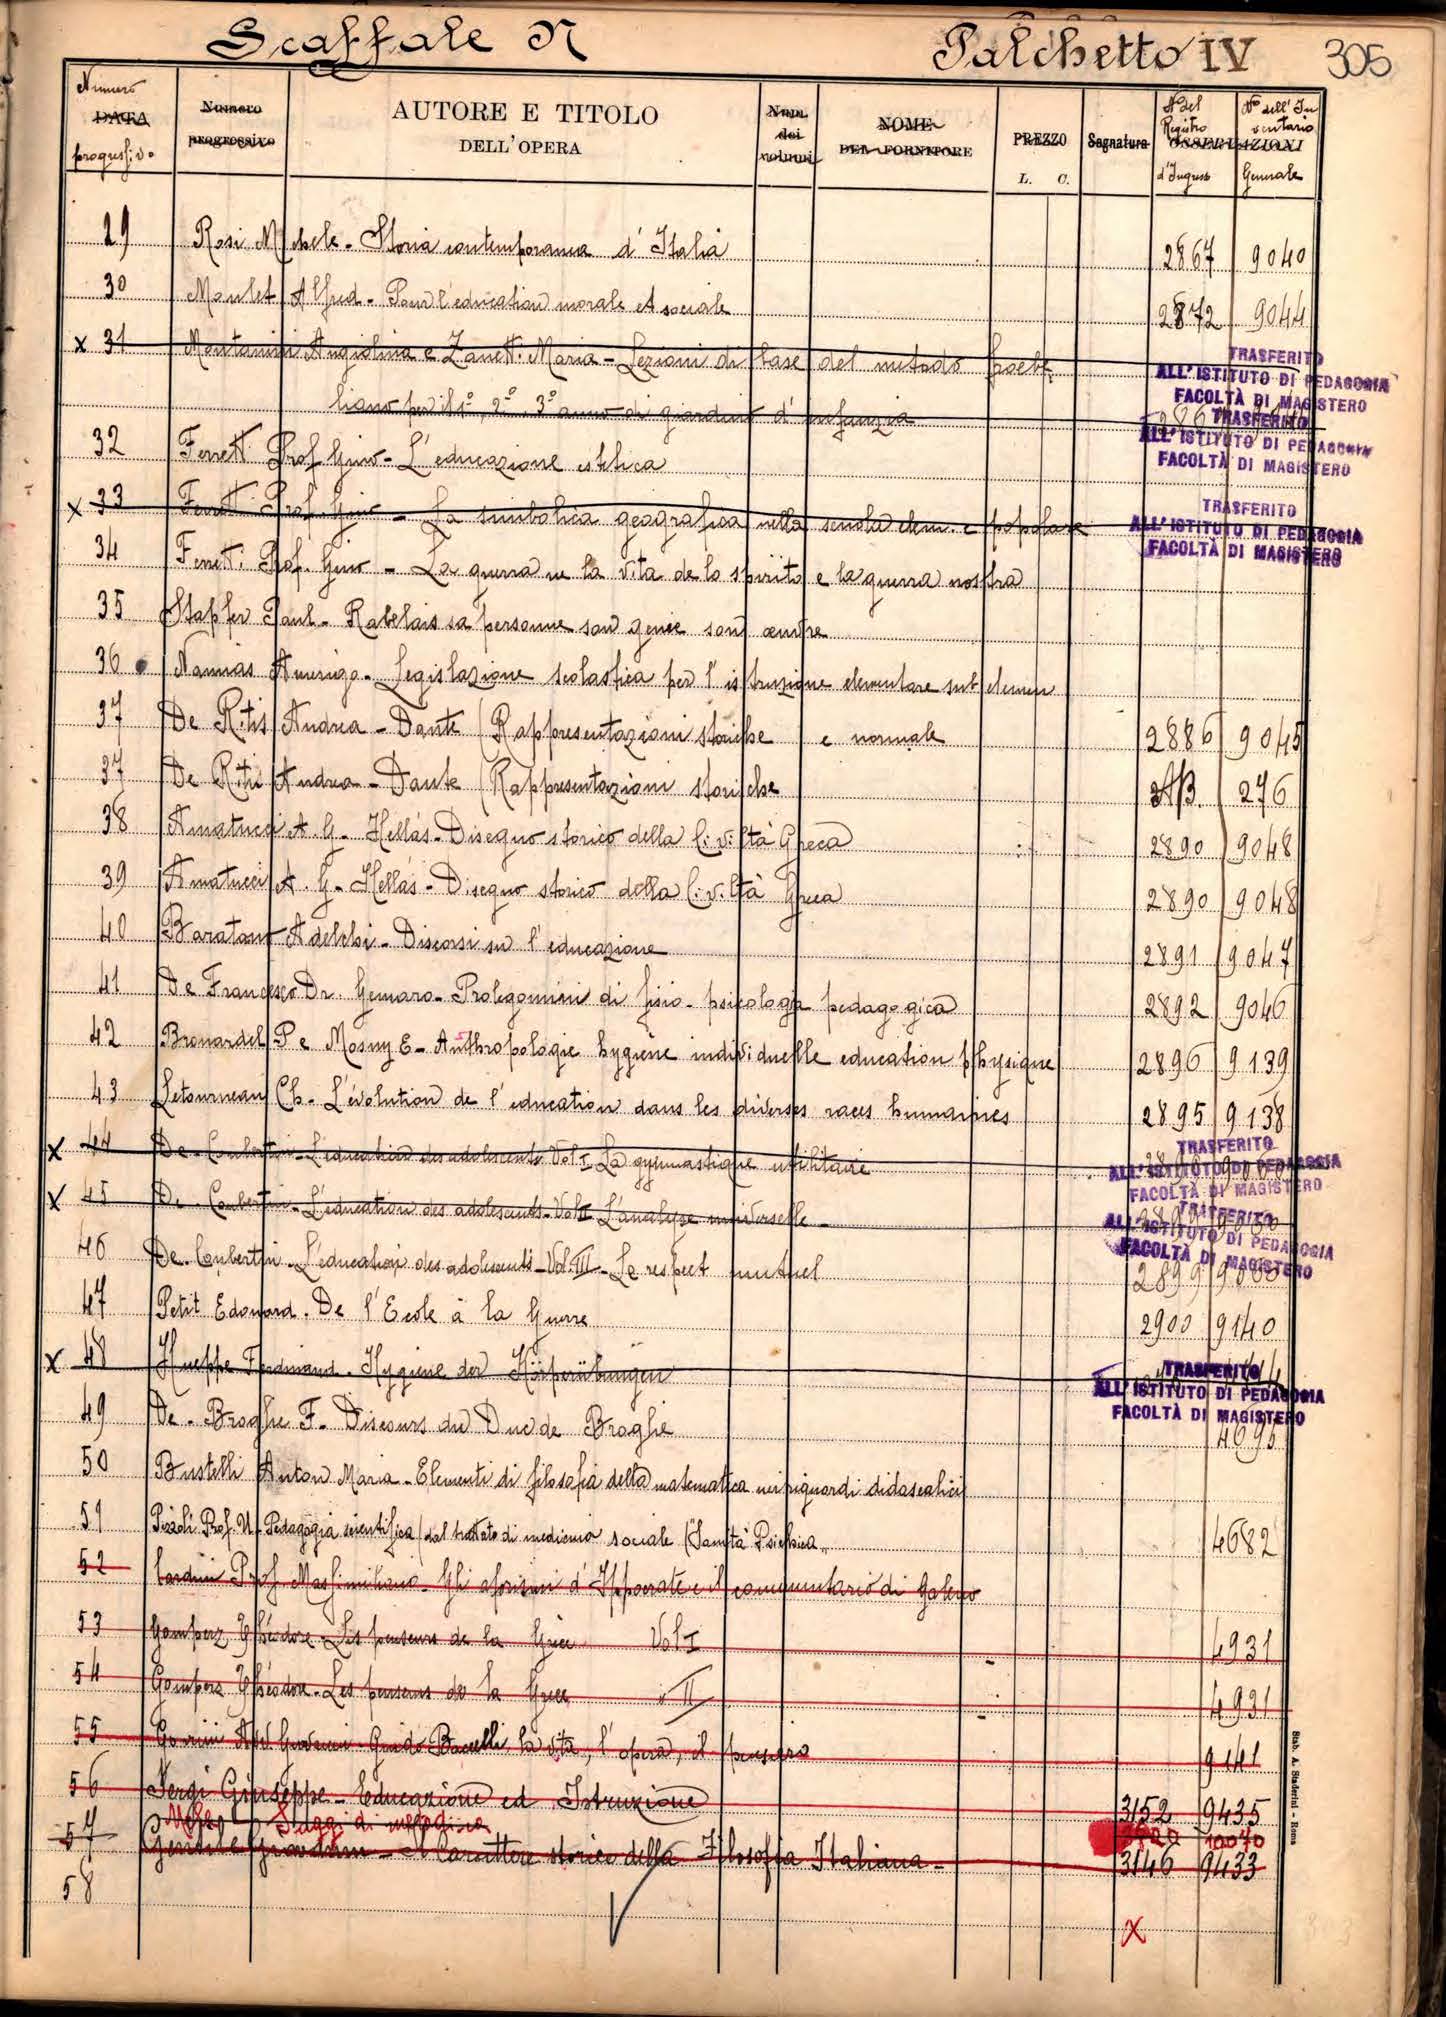 Scaffale N Palchetto IV 305
Numero DATA progressivo
Numero progressivo
AUTORE E TITOLO DELL'OPERA
Num. dei volumi
NOME DEL FORNITORE
PREZZO L. C.
Segnatura
OSSERVAZIONI
N° del Registro d'Ingresso
N° dell'Inventario Generale
29 Rosi Michele - Storia contemporanea d'Italia 2867 9040
30 Moulet Alfred - Pour l'education morale et sociale 2872 9044
x 31 Montanini Angiolina e Zanetti Maria - Lezioni di base del metodo froeb
liano per il 1°, 2°, 3° anno di giardino d'infanzia
TRASFERITO
ALL'ISTITUTO DI PEDAGOGIA
FACOLTÀ DI MAGISTERO
32 Ferretti Prof Gino - L'educazione estetica
TRASFERITO
ALL'ISTITUTO DI PEDAGOGIA
FACOLTÀ DI MAGISTERO
x 33 Ferretti Prof. Gino - La simbolica geografica nella scuola elem. e popolare
TRASFERITO
ALL'ISTITUTO DI PEDAGOGIA
FACOLTÀ DI MAGISTERO
34 Ferretti Prof. Gino - La guerra ne la vita de lo spirito e la guerra nostra
35 Stapfer Paul - Rabelais sa personne son genie son œuvre
36 Namias Amerigo - Legislazione scolastica per l'istruzione elementare sub elemen
37 De Ritis Andrea - Dante (Rappresentazioni storiche e normale 2886 9045
37 De Ritis Andrea - Dante (Rappresentazioni storiche AB. 276
38 Amatucci A. G. - Hellás - Disegno storico della Civiltà Greca 2890 9048
39 Amatucci A. G - Hellás - Disegno storico della Civiltà Greca 2890 9048
40 Baratono Adelchi - Discorsi su l'educazione 2891 9047
41 De Francesco Dr. Gennaro - Prolegomini di fisio-psicologia pedagogica 2892 9046
42 Brouardel P e Mosny E - Anthropologie hygiène individuelle education physique 2896 9139
43 Letourneau Ch - L'évolution de l'education dans les diverses races humaines 2895 9138
x 44 De-Coubertin - L'education des adolescents Vol I La gymnastique utilitaire
TRASFERITO
ALL'ISTITUTO DI PEDAGOGIA
FACOLTÀ DI MAGISTERO
x 45 De Coubertin - L'education des adolescents - Vol II L'analyse universelle
TRASFERITO
ALL'ISTITUTO DI PEDAGOGIA
FACOLTÀ DI MAGISTERO
46 De-Coubertin - L'education des adolescents - Vol. III - Le respect mutuel 2899
47 Petit Edouard. De l'Ecole à la Guerre 2900 9140
x 48 Hueppe Ferdinand. Hygiene der Körperübungen
TRASFERITO
ALL'ISTITUTO DI PEDAGOGIA
FACOLTÀ DI MAGISTERO
49 De-Broglie F - Discours du Duc de Broglie 4695
50 Bustelli Anton Maria - Elementi di filosofia della matematica nei riguardi didascalici
51 Pizzoli Prof. U. Pedagogia scientifica (dal trattato di medicina sociale ("Sanità Psichica" 4682
52 Cardini Prof Massimiliano - Gli aforismi d'Ippocrate e il commentario di Galeno
53 Gomperz Théodore - Les penseurs de la Grèce Vol I 4931
54 Gomperz Théodore - Les penseurs de la Grèce " II 4931
55 Giovanni - Guido Baccelli, la vita, l'opera, il pensiero 9141
56 Sergi Giuseppe - Educazione ed Istruzione 3152 9435
Saggi di 10070
57 Gentile Giovanni - Il Carattere storico della Filosofia Italiana - 3146 9433
58
x
Stab. A. Staderini - Roma